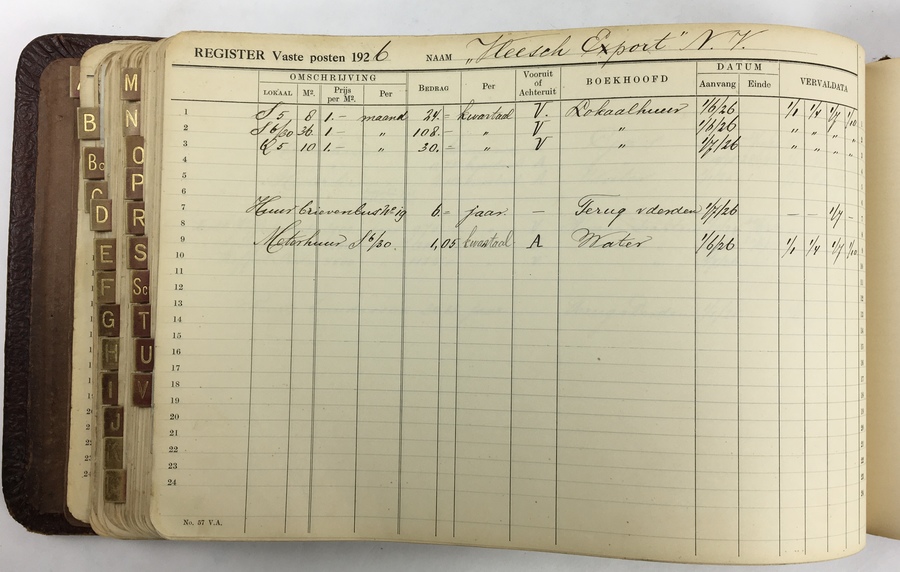 REGISTER Vaste posten 1926 NAAM „Vleesch Export" N.V.
OMSCHRIJVING BEDRAG Per Vooruit of Achteruit BOEKHOOFD DATUM VERVALDATA
LOKAAL M². Prijs per M². Per Aanvang Einde
1 S 5 8 1.— maand 24.= kwartaal V. Lokaalhuur 1/6/26 1/1 1/4 1/7 1/10
2 S 6/30 36 1— „ 108.— „ V „ 1/6/26 „ „ „ „
3 Q 5 10 1.— „ 30.= „ V „ 1/7/26 „ „ „ „
4
5
6
7 Huur brievenbus No 19 6.= jaar. — Terug v derden 1/7/26 — — 1/7 —
8
9 Meterhuur S 6/30. 1,05 kwartaal A Water 1/6/26 1/1 1/4 1/7 1/10
10
11
12
13
14
15
16
17
18
19
20
21
22
23
24
No. 57 V.A.
B
Bo
C
D
E
F
G
H
I
J
K
M
N
O
P
R
S
Sc
T
U
V